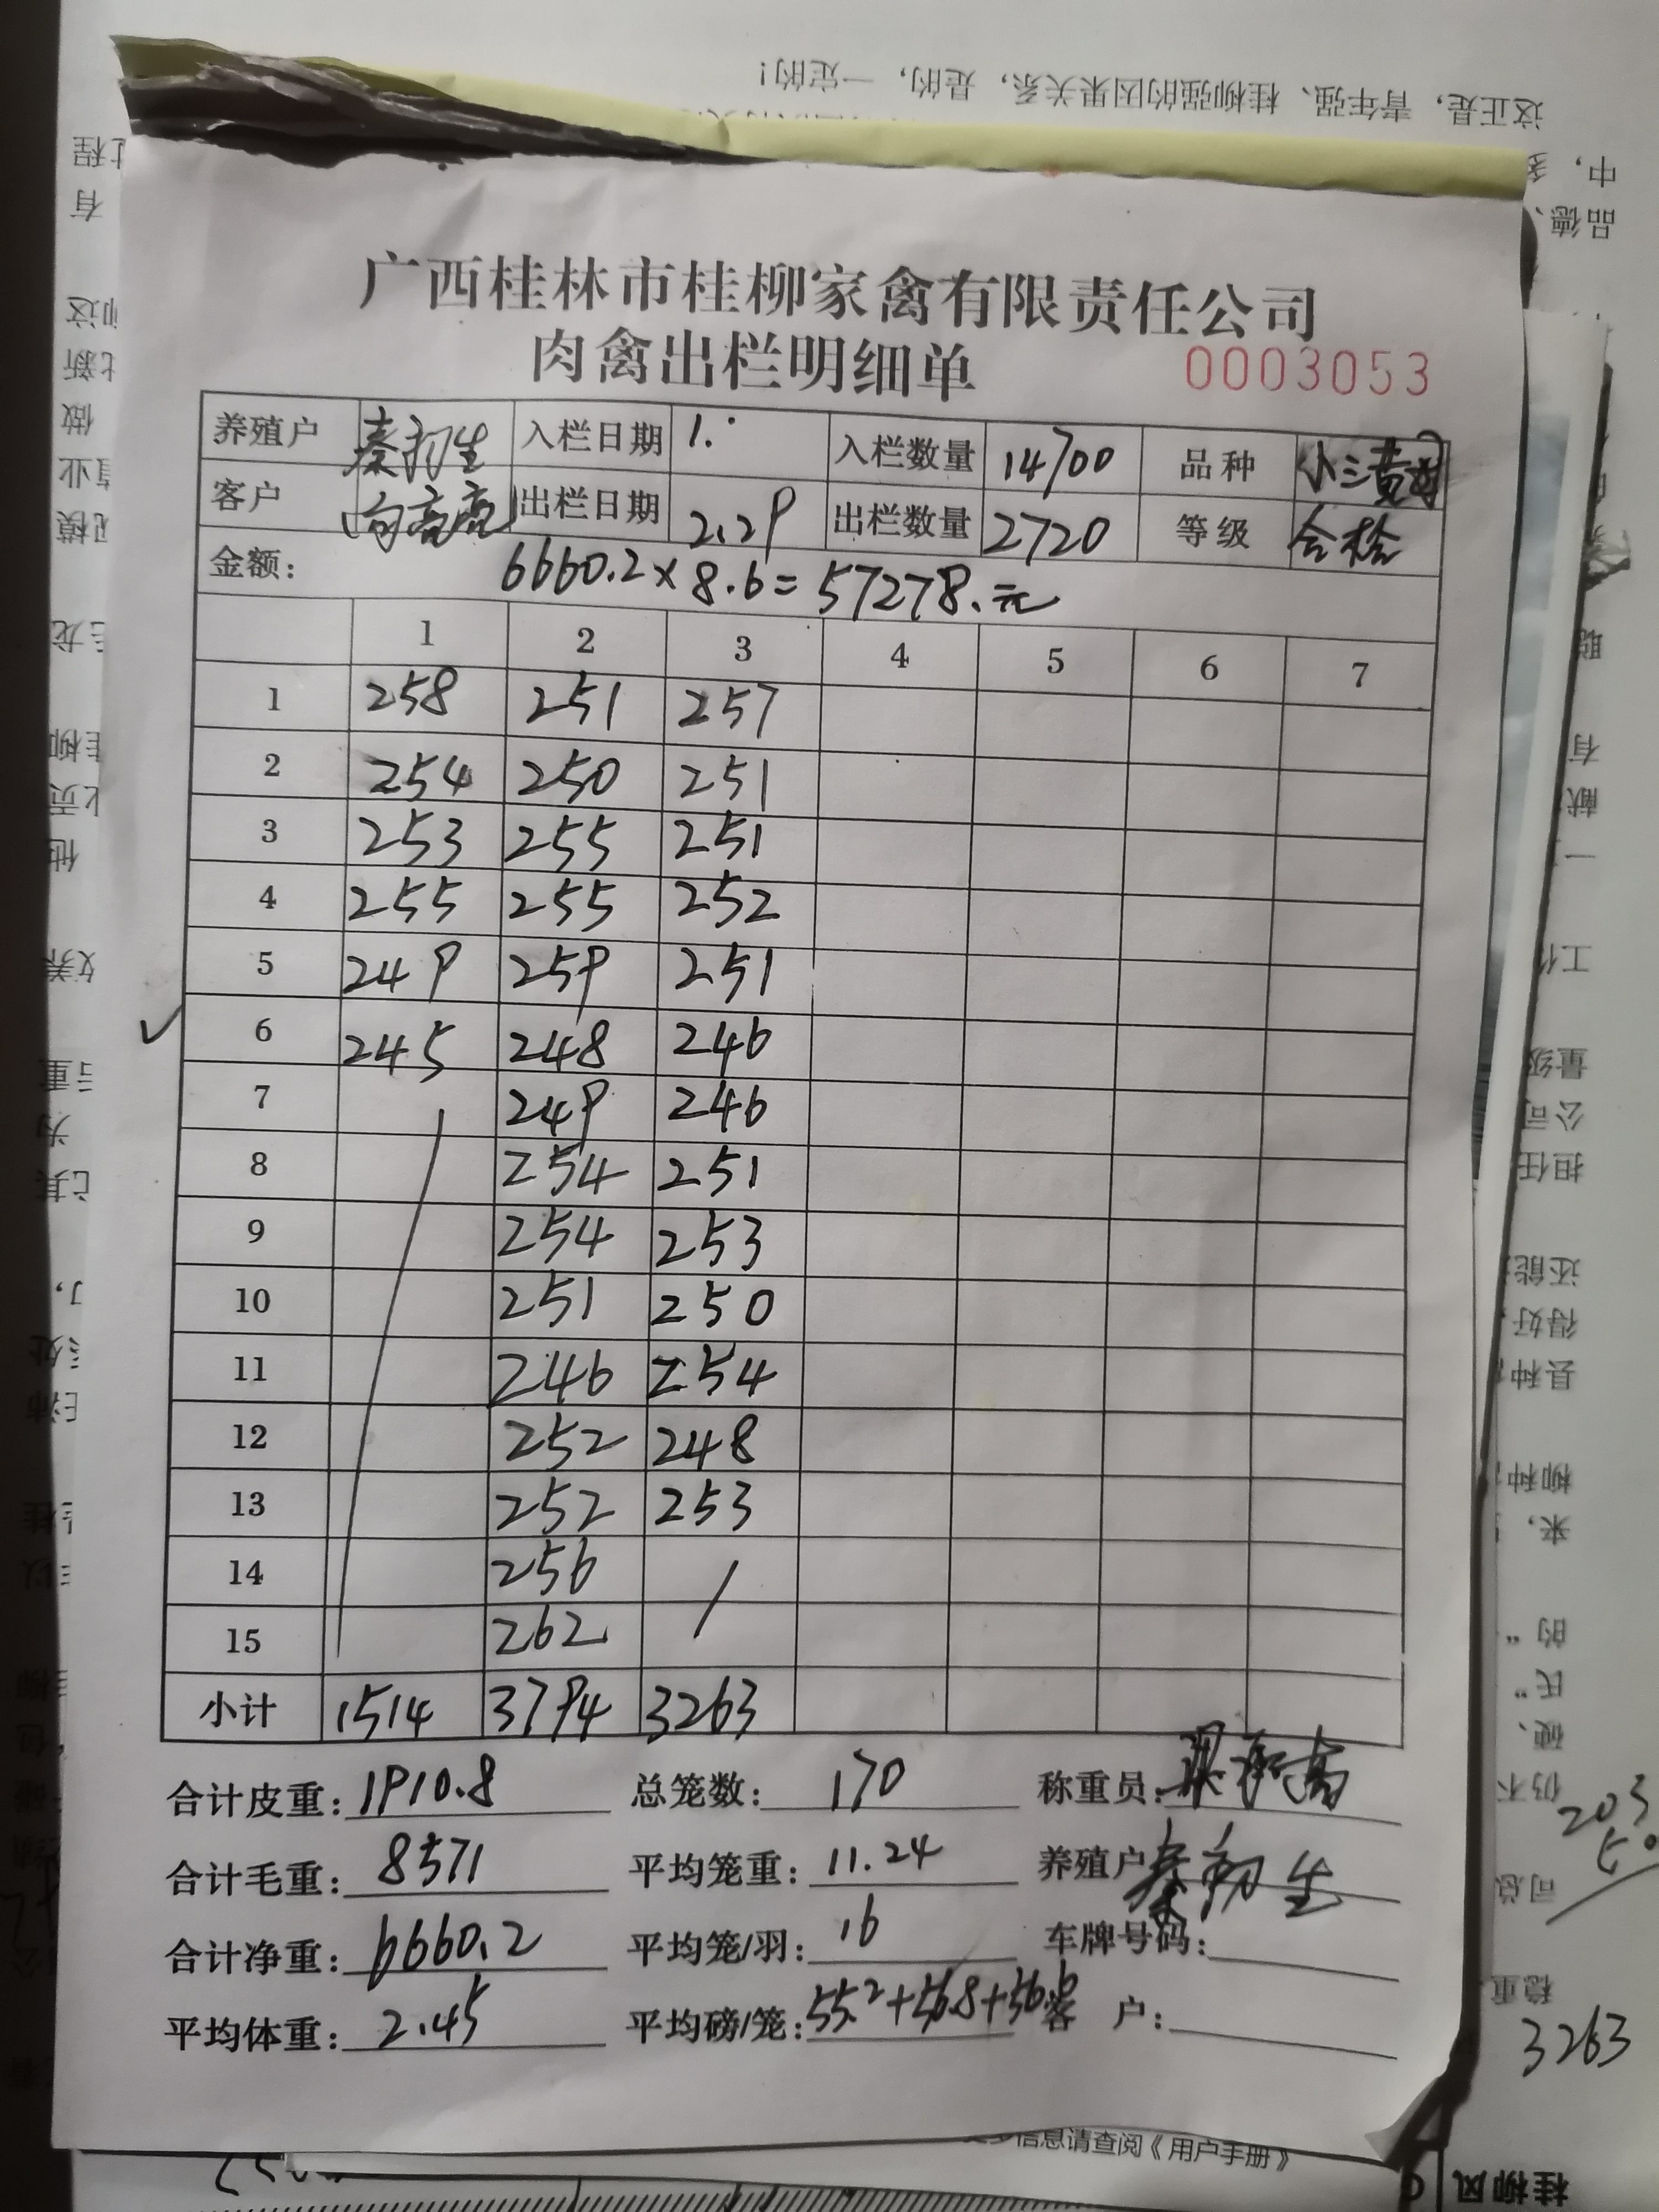 广西桂林市桂柳家禽有限责任公司
肉禽出栏明细单 0003053
养殖户 秦 生 入栏日期 1. 入栏数量 14700 品种 小三黄
客户 向亮亮 出栏日期 2.29 出栏数量 2720 等级 合格
金额: 6660.2×8.6=57278.元
1 2 3 4 5 6 7
1 258 251 257
2 254 250 251
3 253 255 251
4 255 255 252
5 249 259 251
6 245 248 246
7 249 246
8 254 251
9 254 253
10 251 250
11 246 254
12 252 248
13 252 253
14 256
15 262
小计 1514 3794 3263
合计皮重: 1910.8 总笼数: 170 称重员:
合计毛重: 8571 平均笼重: 11.24 养殖户 秦 生
合计净重: 6660.2 平均笼/羽: 16 车牌号码:
平均体重: 2.45 平均磅/笼: 55.2+56.8+56.6 客 户:
这正是，青年强、桂柳强的因果关系，是的，一定的！
203
3263
信息请查阅《用户手册》
桂柳风